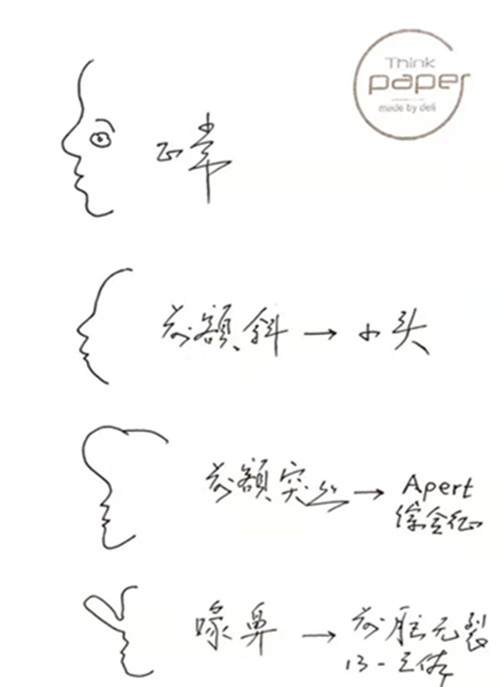 Think
paper
made by deli
正常
前额斜 → 小头
前额突出 → Apert
综合征
喙鼻 → 前脑无裂
13-三体